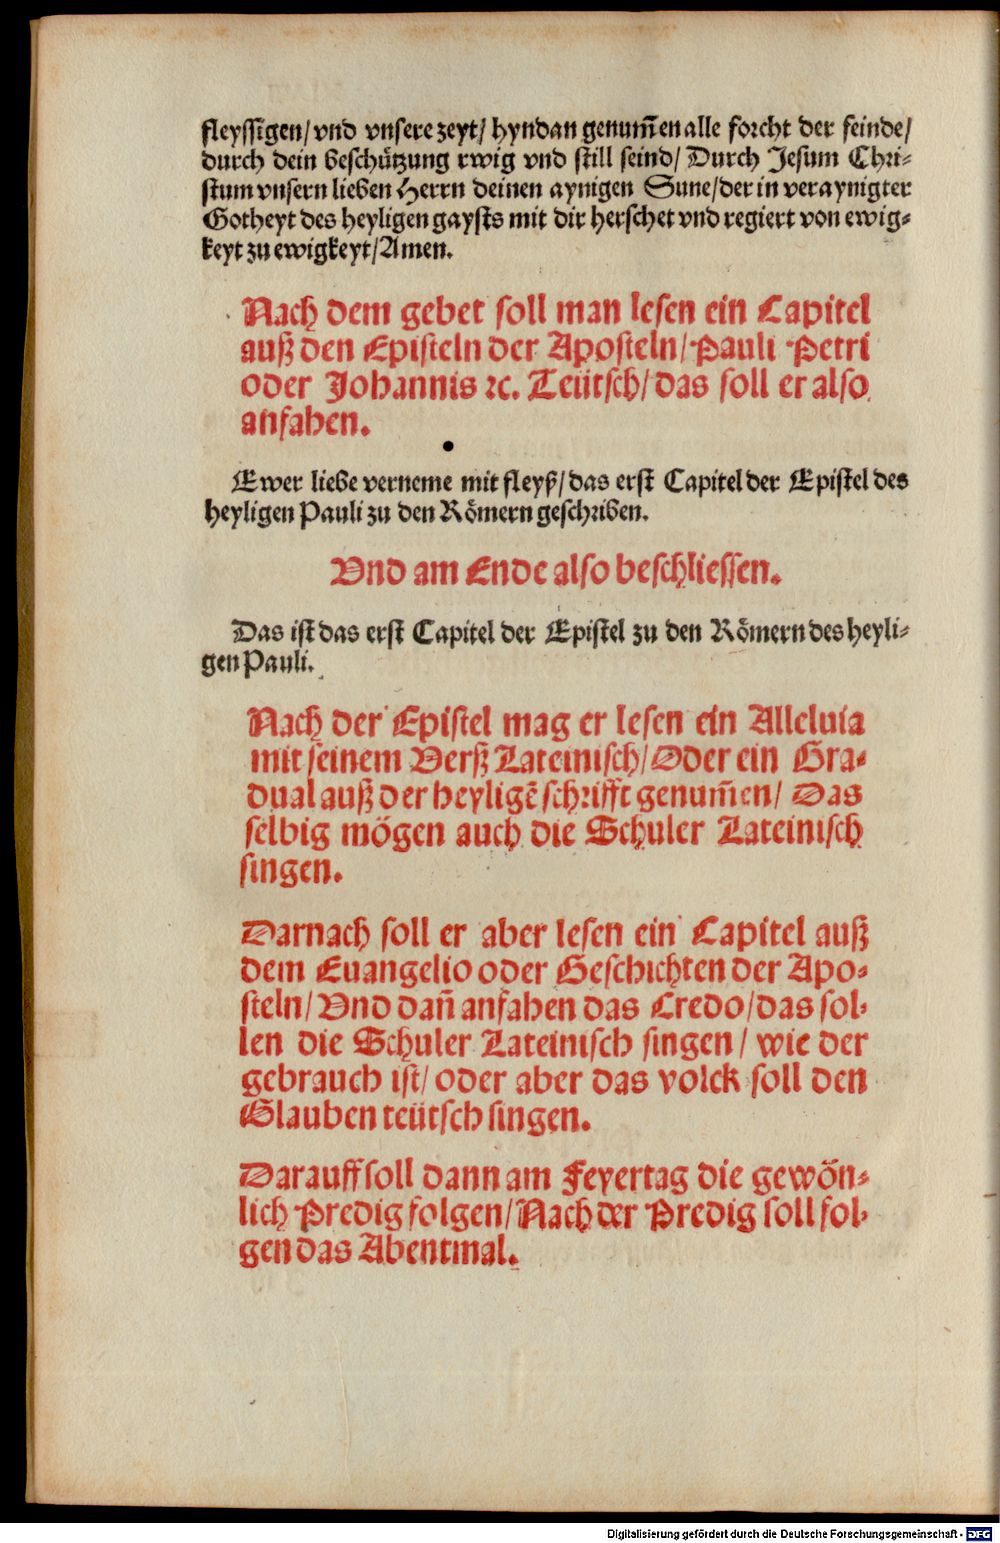 fleyssigen/ vnd vnsere zeyt/ hyndan genum̃en alle forcht der feinde/
durch dein beschützung rwig vnd still seind/ Durch Jesum Chri-
stum vnsern lieben Herrn deinen aynigen Sune/ der in veraynigter
Gotheyt des heyligen gaysts mit dir herschet vnd regiert von ewig-
keyt zu ewigkeyt/ Amen.
Nach dem gebet soll man lesen ein Capitel
auß den Episteln der Aposteln/ Pauli Petri
oder Johannis ꝛc. Teütsch/ das soll er also
anfahen.
Ewer liebe verneme mit fleyß/ das erst Capitel der Epistel des
heyligen Pauli zu den Römern geschriben.
Vnd am Ende also beschliessen.
Das ist das erst Capitel der Epistel zu den Römern des heyli-
gen Pauli.
Nach der Epistel mag er lesen ein Alleluia
mit seinem Verß Lateinisch/ Oder ein Gra-
dual auß der heyligẽ schrifft genum̃en/ Das
selbig mögen auch die Schuler Lateinisch
singen.
Darnach soll er aber lesen ein Capitel auß
dem Euangelio oder Geschichten der Apo-
steln/ Vnd dañ anfahen das Credo/ das sol-
len die Schuler Lateinisch singen/ wie der
gebrauch ist/ oder aber das volck soll den
Glauben teütsch singen.
Darauff soll dann am Feyertag die gewön-
lich Predig folgen/ Nach der Predig soll fol-
gen das Abentmal.
Digitalisierung gefördert durch die Deutsche Forschungsgemeinschaft - DFG